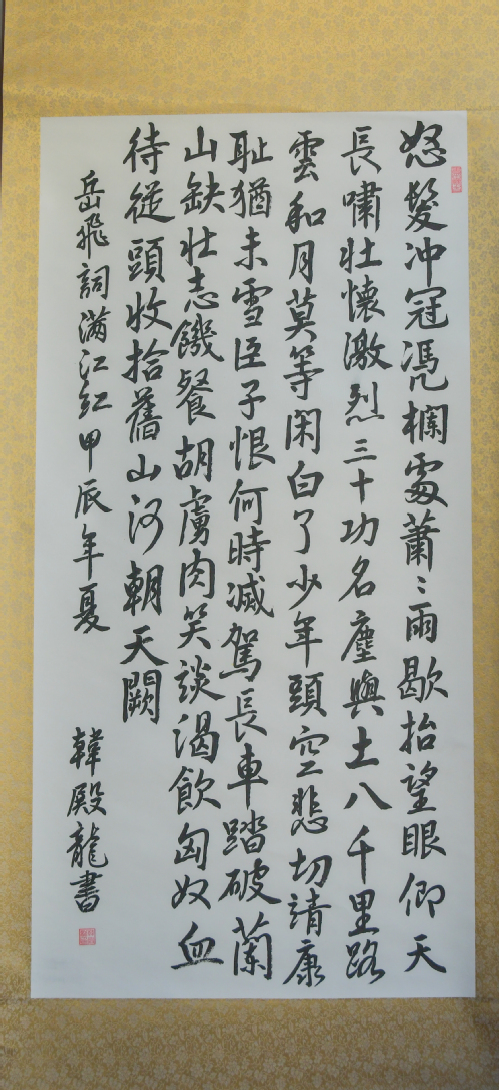 怒髮冲冠憑欄處蕭〻雨歇抬望眼仰天
長嘯壯懷激烈三十功名塵與土八千里路
雲和月莫等閑白了少年頭空悲切靖康
耻猶未雪臣子恨何時减駕長車踏破蘭
山缺壯志饑餐胡虜肉笑談渴飲匈奴血
待從頭收拾舊山河朝天闕
岳飛詞滿江紅甲辰年夏
韓殿龍書